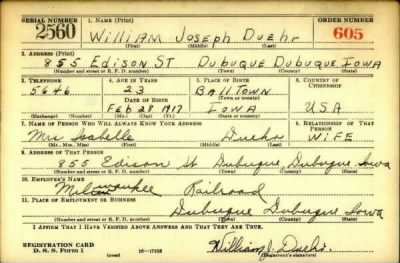 SERIAL NUMBER 1. NAME (Print) ORDER NUMBER
2560 William Joseph Duehr 605
(First) (Middle) (Last)
2. ADDRESS (Print)
855 Edison St Dubuque Dubuque Iowa
(Number and street or R. F. D. number) (Town) (County) (State)
3. TELEPHONE 4. AGE IN YEARS 5. PLACE OF BIRTH 6. COUNTRY OF CITIZENSHIP
5646 23 Balltown
DATE OF BIRTH (Town or county)
Feb 28 1917 Iowa USA
(Exchange) (Number) (Mo.) (Day) (Yr.) (State or country)
7. NAME OF PERSON WHO WILL ALWAYS KNOW YOUR ADDRESS 8. RELATIONSHIP OF THAT PERSON
Mrs Isabelle Duehr Wife
(Mr., Mrs., Miss) (First) (Middle) (Last)
9. ADDRESS OF THAT PERSON
855 Edison St Dubuque, Dubuque Iowa
(Number and street or R. F. D. number) (Town) (County) (State)
10. EMPLOYER'S NAME
Milwaukee Railroad
11. PLACE OF EMPLOYMENT OR BUSINESS
Dubuque Dubuque Iowa
(Number and street or R. F. D. number) (Town) (County) (State)
I AFFIRM THAT I HAVE VERIFIED ABOVE ANSWERS AND THAT THEY ARE TRUE.
REGISTRATION CARD
D. S. S. Form 1 (over) William J. Duehr
(Registrant's signature)